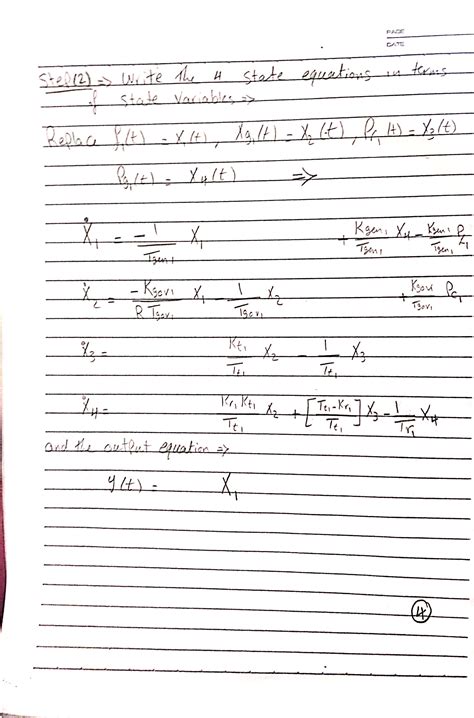 PAGE
DATE
Step(2) => Write the 4 state equations in terms
of state variables =>
Replace f₁(t) = X₁(t), Xg₁(t) = X₂(t), Pr₁(t) = X₃(t)
Pg₁(t) = X₄(t) =>
Ẋ₁ = -1/Tgen₁ X₁ + Kgen₁/Tgen₁ X₄ - Kgen₁/Tgen₁ PL₁
Ẋ₂ = -Kgov₁/R Tgov₁ X₁ - 1/Tgov₁ X₂ + Kgov₁/Tgov₁ Pc₁
Ẋ₃ = Kt₁/Tt₁ X₂ - 1/Tt₁ X₃
Ẋ₄ = Kr₁ Kt₁/Tt₁ X₂ + [Tt₁-Kr₁/Tt₁] X₃ - 1/Tr₁ X₄
and the output equation =>
y(t) = X₁
4